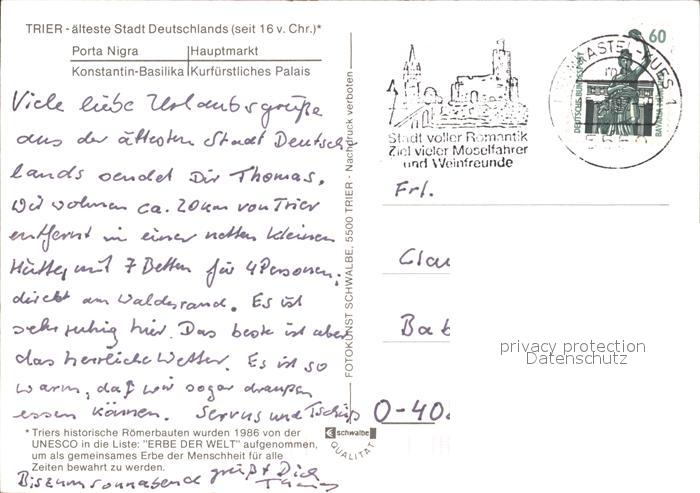 TRIER - älteste Stadt Deutschlands (seit 16 v. Chr.)*
Porta Nigra Hauptmarkt
Konstantin-Basilika Kurfürstliches Palais
Viele liebe Urlaubsgrüße
aus der ältesten Stadt Deutsch-
lands sendet Dir Thomas.
Wir wohnen ca. 20 km von Trier
entfernt in einer netten kleinen
Hütte, mit 7 Betten für 4 Personen,
direkt am Waldesrand. Es ist
sehr ruhig hier. Das beste ist aber
das herrliche Wetter. Es ist so
warm, daß wir sogar draußen
essen können. Servus und Tschüß
*Triers historische Römerbauten wurden 1986 von der
UNESCO in die Liste: "ERBE DER WELT" aufgenommen,
um als gemeinsames Erbe der Menschheit für alle
Zeiten bewahrt zu werden.
Bis zum Sonnabend grüßt Dich
Thomas
FOTOKUNST SCHWALBE, 5500 TRIER - Nachdruck verboten
schwalbe
QUALITÄT
Stadt voller Romantik
Ziel vieler Moselfahrer
und Weinfreunde
BERNKASTEL-KUES 1
m
5550
60
DEUTSCHE BUNDESPOST
Frl.
Clau
Bab
O-40
privacy protection
Datenschutz